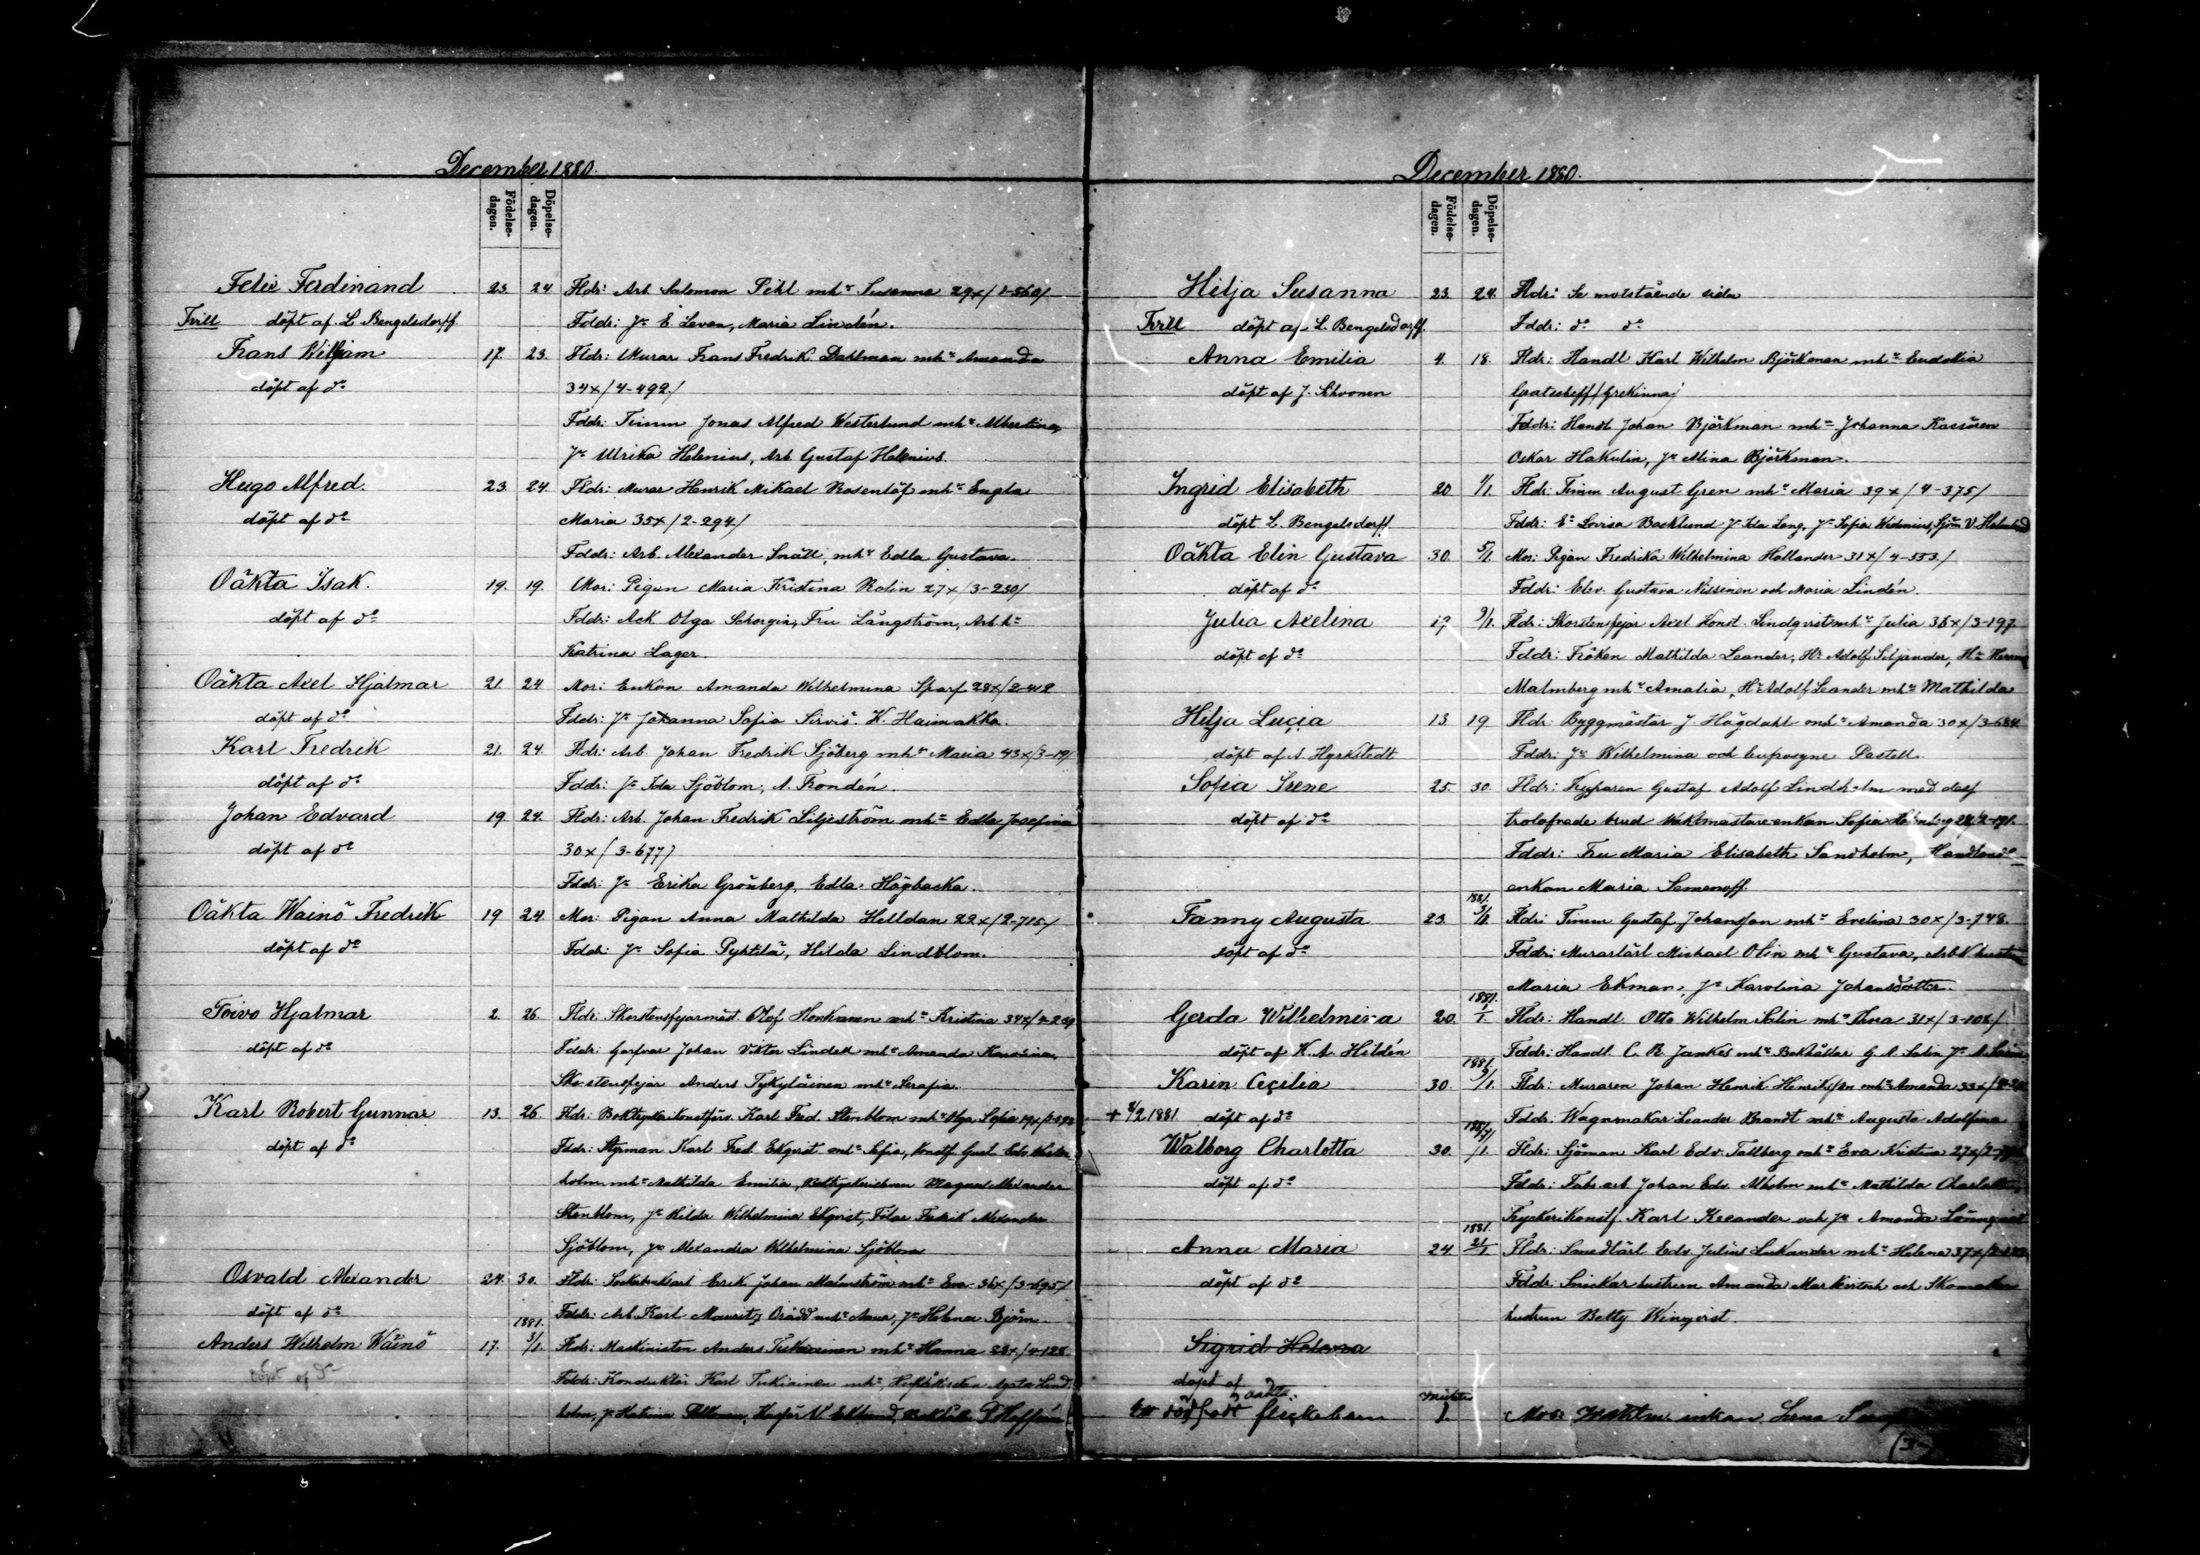 December 1880.
Födelse-dagen.
Döpelse-dagen.
Felix Ferdinand 23. 24 Fldr: Arb. Salomon Pihl mh:r Susanna 29x/1-560/
Tvill döpt af L Bengelsdorff. Fddr: J:r E. Levon, Maria Lindén.
Frans William 17. 23. Fldr: Murar Frans Fredrik Dahlman mh:r Amanda
döpt af d:o 34x/4-492/
Fddr: Timm Jonas Alfred Westerlund mh:r Albertina,
J:r Ulrika Helenius, Arb. Gustaf Helenius.
Hugo Alfred. 23 24. Fldr: Murar Henrik Mikael Rosenlöf mh:r Engla
döpt af d:o Maria 35x/2-294/
Fddr: Arb. Alexander Snäll, mh:r Edla Gustava.
Oäkta Isak. 19. 19. Mor: Pigan Maria Kristina Rolin 27x/3-230/
döpt af d:o Fddr: Ack. Olga Schorgin, Fru Långström, Arb. h:n
Katrina Lager.
Oäkta Axel Hjalmar 21 24 Mor: Enkan Amanda Wilhelmina Sparf 28x/2-412
döpt af d:o Fddr: J:r Johanna Sofia Sirviö. K. Haimakka.
Karl Fredrik 21. 24. Fldr: Arb. Johan Fredrik Sjöberg mh:r Maria 43x/3-19/
döpt af d:o Fddr: J:r Ida Sjöblom, A. Frondén.
Johan Edvard 19 24. Fldr: Arb. Johan Fredrik Liljeström mh:r Edla Josefina
döpt af d:o 30x/3-677/
Fddr: J:r Erika Grönberg, Edla Högbacka.
Oäkta Wäinö Fredrik 19 24. Mor: Pigan Anna Mathilda Helldan 22x/2-715/
döpt af d:o Fddr: J:r Sofia Pyhtilä, Hilda Lindblom.
Toivo Hjalmar 2. 26. Fldr: Skorstensfejarmäst. Olof Honkanen mh:r Kristina 34x/
döpt af d:o Fddr: Garfvar Johan Viktor Lindell mh:r Amanda
Skorstensfejar Anders Tykyläinen mh:r Serafia.
Karl Robert Gunnar 13. 26 Fldr: Boktryckerikonstförv. Karl Fred. Stenblom mh:r Olga Sofia
döpt af d:o Fddr: Styrman Karl Fred. Ekqvist mh:r Sofia, Konstf. Gust. Edv.
holm mh:r Mathilda Emilia, Magnus Alexander
Stenblom, J:r Hilda Wilhelmina Ekqvist, Filare Fredrik Alexander
Sjöblom, J:r Alexandra Wilhelmina Sjöblom
Osvald Alexander 24. 30. Fldr: Erik Johan Malmström mh:r Eva 36x/3-695/
döpt af d:o Fddr: Arb. Karl Mauritz Orädd mh:r Anna, J:r Helena Björn
Anders Wilhelm Wäinö 17. 1881. 3/1. Fldr: Maskinisten Anders Tukiainen mh:r Hanna 28x/4-128
döpt af d:o Fddr: Konduktör Karl Tukiainen mh:r, Lind
holm, J:r Katrina V. Eklund,
December 1880.
Födelse-dagen.
Döpelse-dagen.
Hilja Susanna 23. 24. Fldr: Se motstående sida
Tvill döpt af L. Bengelsdorff. Fddr: d:o d:o
Anna Emilia 4. 18. Fldr: Handl Karl Wilhelm Björkman mh:r Eudokia
döpt af J. Schvonen (Grekinna)
Fddr: Handl. Johan Björkman mh:r Johanna Kassören
Oskar Hakulin, J:r Alina Björkman.
Ingrid Elisabeth 20 1/1. Fldr: Timm August Gren mh:r Maria 39x/4-375/
döpt L. Bengelsdorff. Fddr: E:n Lovisa Backlund J:r Ida Lang, J:r Sofia Widenius, Sjöm V.
Oäkta Elin Gustava 30. 5/1. Mor: Pigan Fredrika Wilhelmina Hallander 31x/4-553/
döpt af d:o Fddr: Elev. Gustava Nissinen och Maria Lindén.
Julia Axelina 19 9/1. Fldr: Skorstensfejar Axel Konst. Lindqvist mh:r Julia 36x/3-197
döpt af d:o Fddr: Fröken Mathilda Leander, H:r Adolf Siljander, H:r Herm
Malmberg mh:r Amalia, H:r Adolf Leander mh:r Mathilda
Hilja Lucia 13 19 Fldr: Byggmästar J. Högdahl mh:r Amanda 30x/3-684
döpt af A. Hyrkstedt Fddr: J:r Wilhelmina och Eufrosyne Pastell.
Sofia Irene 25. 30. Fldr: Kyparen Gustaf Adolf Lindholm med dess
döpt af d:o trolofvade brud Vaktmästare enkan Sofia
Fddr: Fru Maria Elisabeth Sandholm, Handlande
enkan Maria Semenoff.
Fanny Augusta 23. 1881. 3/1. Fldr: Timm Gustaf Johansson mh:r Evelina 30x/3-748.
döpt af d:o Fddr: Murarlärl Michael Olin mh:r Gustava, Arbk. hustru
Maria Ekman, J:r Karolina Johansdotter.
Gerda Wilhelmina 20. 1881. 1/1. Fldr: Handl. Otto Wilhelm Salin mh:r Thora 31x/3-108/
döpt af K. A. Hildén Fddr: Handl. C. R. Jankes mh:r Bokhållar G A Salin J:r A.
Karin Cecilia 30. 1881. 9/1. Fldr: Muraren Johan Henrik Henriksson mh:r Amanda 33x/
+ 2/2 1881. döpt af d:o Fddr. Wagnmakar Leander Brandt mh:r Augusta Adolfina
Walborg Charlotta 30. 1881. /1. Fldr: Sjöman Karl Edv. Tallberg mh:r Eva Kristina 27x/
döpt af d:o Fddr: Fabr. arb. Johan Edv. Ahlholm mh:r Mathilda Charlotta
Tryckerikonstf. Karl Kreander och J:r Amanda Lönnqvist
Anna Maria 24. 1881. 21/1. Fldr: Smedlärl Edv. Julius Lukander mh:r Helena 37x/
döpt af d:o Fddr: Snickar hustrun Amanda Markvitsch och Skomakare
hustrun Betty Winqvist.
Sigrid Helena
döpt af
Ett dödfödt oäkta flickebarn 1. Mor: enkan Lena
(3-